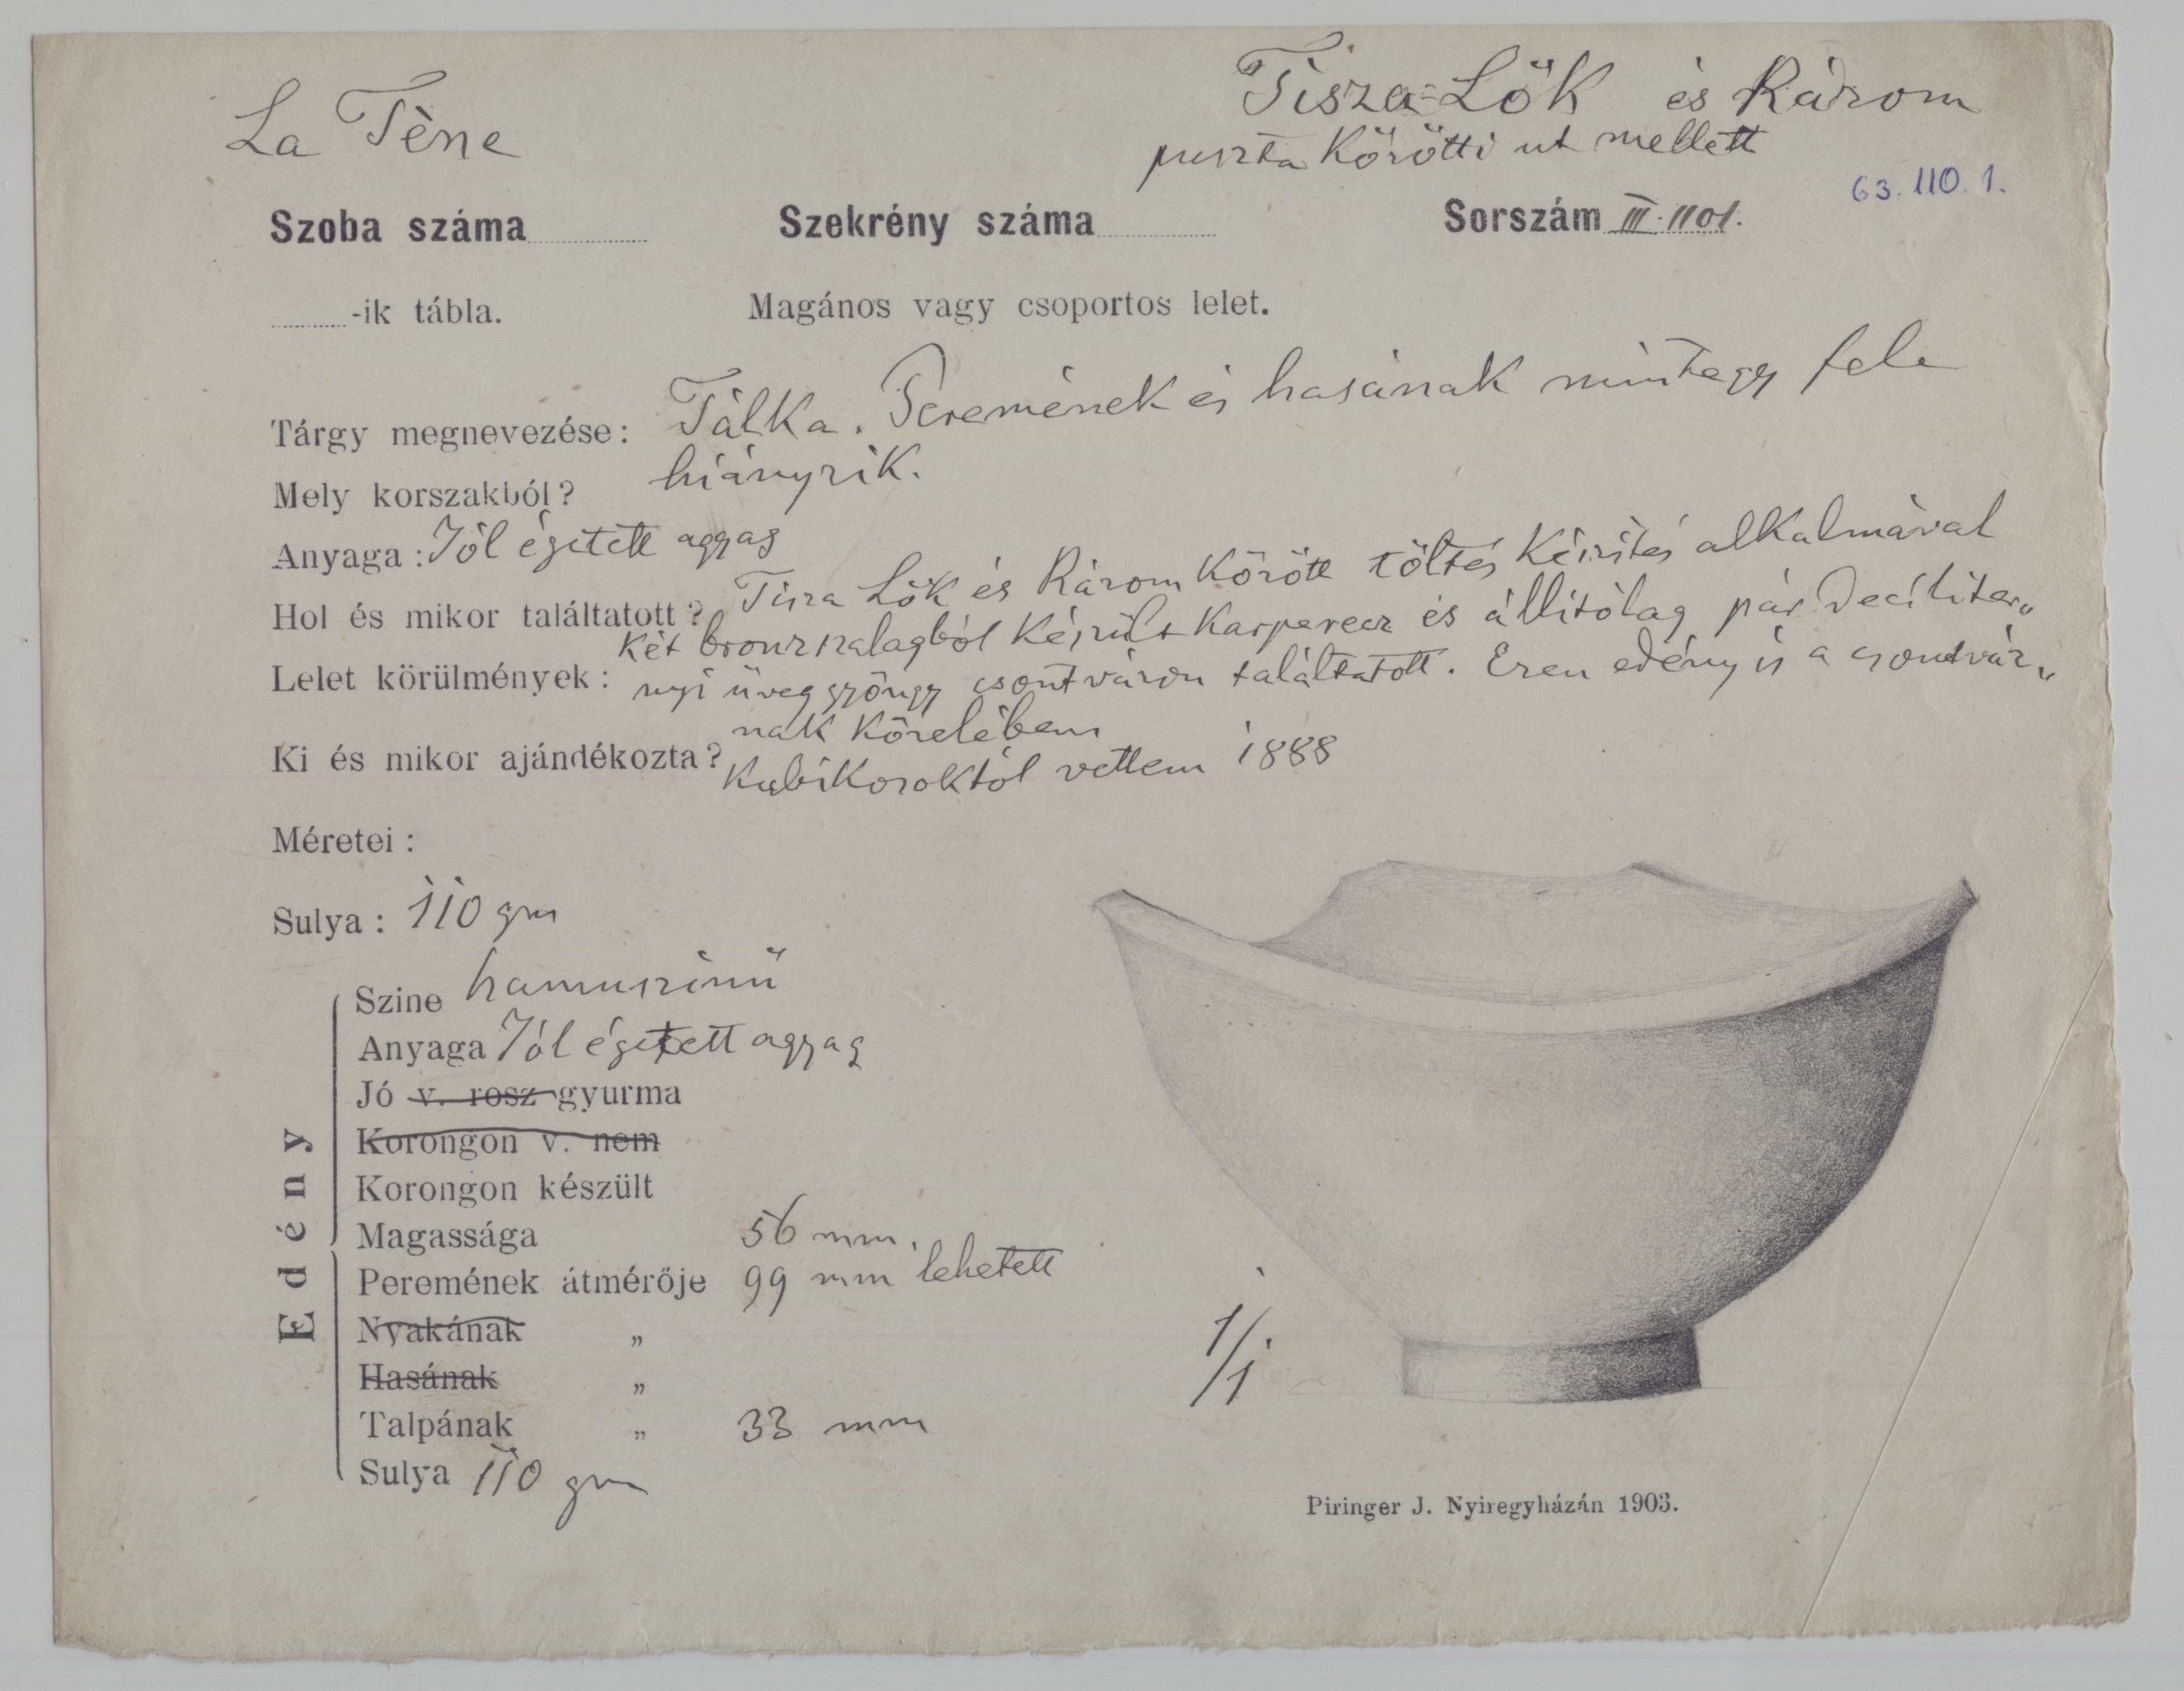 La Tène
Tisza-Lök és Rázom
puszta Körötti ut mellett
63.110.1.
Szoba száma Szekrény száma Sorszám III.1101.
-ik tábla. Magános vagy csoportos lelet.
Tárgy megnevezése: Tálka. Peremének és hasának mintegy fele
hiányzik.
Mely korszakból?
Anyaga: Jól égetett agyag
Hol és mikor találtatott? Tisza Lök és Rázom Között töltés Készítés alkalmával
Két bronz szalagból Készült Karperecz és állítólag pár deciliter„
Lelet körülmények: nyi üveg gyöngy csontvázon találtatott. Ezen edény is a csontváz„
nak Közelében
Ki és mikor ajándékozta? Kubikosoktól vettem 1888
Méretei:
Sulya: 110 gm
Edény
Szine hamuszinü
Anyaga Jól égetett agyag
Jó v. rosz gyurma
Korongon v. nem
Korongon készült
Magassága 56 mm.
Peremének átmérője 99 mm lehetett
Nyakának „
Hasának „
Talpának „ 33 mm
Sulya 110 gm
1/1
Piringer J. Nyiregyházán 1903.